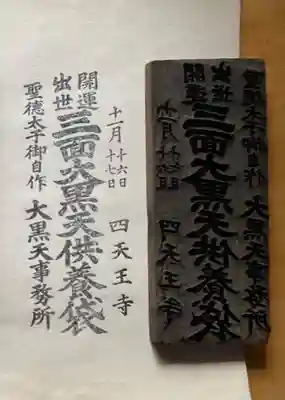 十一月 十六日 十七日 四天王寺
開運 出世 三面大黒天供養袋
聖徳太子御自作 大黒天事務所
十一月 十六日 十七日 四天王寺
開運 出世 三面大黒天供養袋
聖徳太子御自作 大黒天事務所